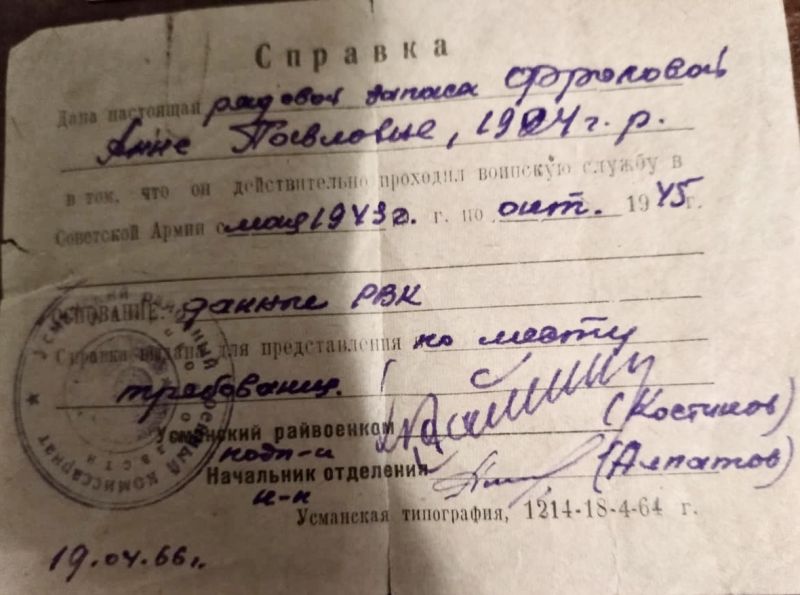 Справка
Дана настоящая рядовой запаса Фроловой
Анне Павловне, 1924 г. р.
в том, что он действительно проходил воинскую службу в
Советской Армии с мая 1943г. г. по окт. 1945 г.
ОСНОВАНИЕ: данные РВК
Справка выдана для представления по месту
требования.
Усманский райвоенком (Костиков)
подп-к
Начальник отделения (Алпатов)
м-р
Усманская типография, 1214-18-4-64 г.
19.04.66г.
Усманский районный военный комиссариат